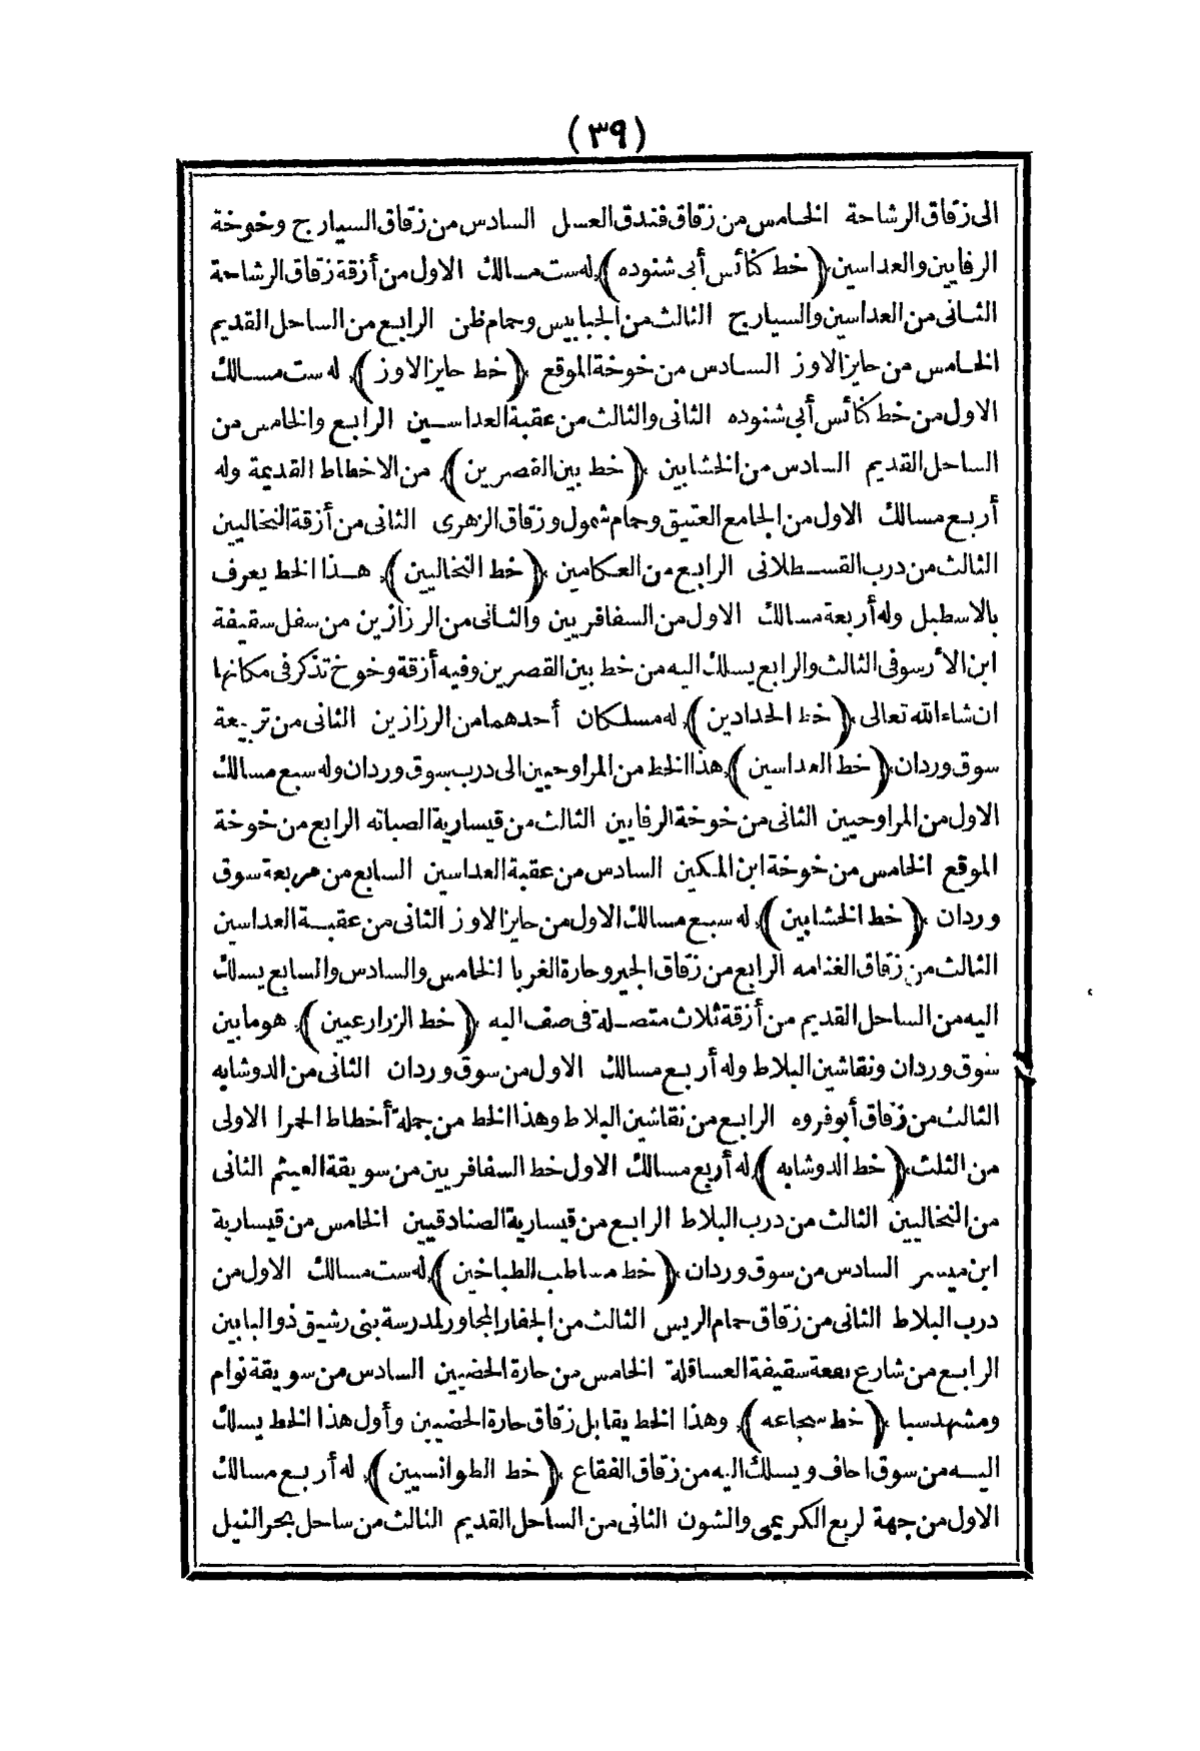 (٣٩)
الى زقاق الرشاحة الخامس من زقاق فندق العسل السادس من زقاق السيارج وخوخة
الرفايين والعداسين (خط كنائس أبى شنوده) له ست مسالك الاول من أزقة زقاق الرشاحة
الثانى من العداسين والسيارج الثالث من الجبابيس وحمام ظن الرابع من الساحل القديم
الخامس من حايز الاوز السادس من خوخة الموقع (خط حايز الاوز) له ست مسالك
الاول من خط كنائس أبى شنوده الثانى والثالث من عقبة العداسين الرابع والخامس من
الساحل القديم السادس من الخشابين (خط بين القصرين) من الاخطاط القديمة وله
أربع مسالك الاول من الجامع العتيق وحمام شمول وزقاق الزهرى الثانى من أزقة النخاليين
الثالث من درب القسطلانى الرابع من العكامين (خط النخاليين) هذا الخط يعرف
بالاسطبل وله أربعة مسالك الاول من السفافريين والثانى من الرزازين من سفل سقيفة
ابن الأرسوفى الثالث والرابع يسلك اليه من خط بين القصرين وفيه أزقة وخوخ تذكر فى مكانها
ان شاء الله تعالى (خط الحدادين) له مسلكان أحدهما من الرزازين الثانى من تربيعة
سوق وردان (خط العداسين) هذا الخط من المراوحيين الى درب سوق وردان وله سبع مسالك
الاول من المراوحيين الثانى من خوخة الرفايين الثالث من قيسارية الصبانه الرابع من خوخة
الموقع الخامس من خوخة ابن المكين السادس من عقبة العداسين السابع من مربعة سوق
وردان (خط الخشابين) له سبع مسالك الاول من حايز الاوز الثانى من عقبة العداسين
الثالث من زقاق الغنامه الرابع من زقاق الجير وحارة الغربا الخامس والسادس والسابع يسلك
اليه من الساحل القديم من أزقة ثلاث متصلة فى صف اليه (خط الزراعيين) هو ما بين
سوق وردان ونقاشين البلاط وله أربع مسالك الاول من سوق وردان الثانى من الدوشابه
الثالث من زقاق أبو فروه الرابع من نقاشين البلاط وهذا الخط من جملة أخطاط الحمرا الاولى
من الثلث (خط الدوشابه) له أربع مسالك الاول خط السفافريين من سويقة العيثم الثانى
من النخاليين الثالث من درب البلاط الرابع من قيسارية الصنادقيين الخامس من قيسارية
ابن ميسر السادس من سوق وردان (خط مساطب الطباخين) له ست مسالك الاول من
درب البلاط الثانى من زقاق حمام الريس الثالث من الجفار المجاور لمدرسة بنى رشيق ذو البابين
الرابع من شارع بقعة سقيفة العساقلة الخامس من حارة الحضيين السادس من سويقة نوام
ومشهد سبا (خط سجاعه) وهذا الخط يقابل زقاق حارة الحضيين وأول هذا الخط يسلك
اليه من سوق احاف ويسلك اليه من زقاق الفقاع (خط الطوانسيين) له أربع مسالك
الاول من جهة لربع الكريمى والشون الثانى من الساحل القديم الثالث من ساحل بحر النيل